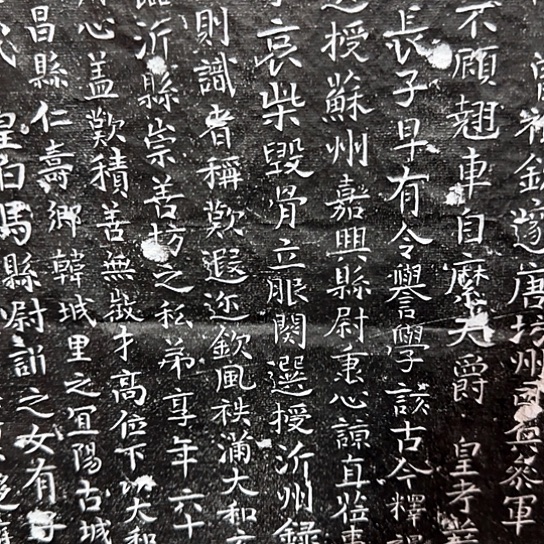 遂唐坊州司兵參軍
不顧翹車自縻天爵 皇考
長子早有令譽學該古今釋褐
授蘇州嘉興縣尉秉心諒直莅事
哀柴毀骨立服闋選授沂州録
則識者稱歎遐迩欽風秩滿大和
沂縣崇善坊之私弟享年六十
心盖歎積善無徵才高位下以大和
昌縣仁壽鄉韓城里之宜陽古城
皇白馬縣尉訢之女有子